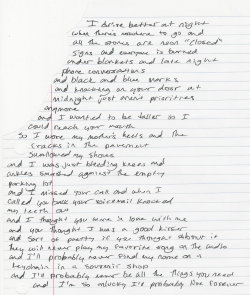 I drive better at night
when there's nowhere to go and
all the stores are neon "closed"
signs and everyone is buried
under blankets and late night
phone conversations
and black and blue marks
and knocking on your door at
midnight just aren't priorities
anymore
and I wanted to be taller so I
could reach your mouth
So I wore my mother's heels and the
cracks in the pavement
swallowed my shoes
and I was just bleeding knees and
ankles smashed against the empty
parking lot
and I missed your call and when I
called you back your voicemail knocked
my teeth out
and I thought you were in love with me
and you thought I was a good kisser
and sort of pretty if you thought about it
they will never play my favorite song on the radio
and I'll probably never find my name on a
keychain in a souvenir shop
and I'll probably never be all the things you need
and I'm so unlucky I'll probably live forever